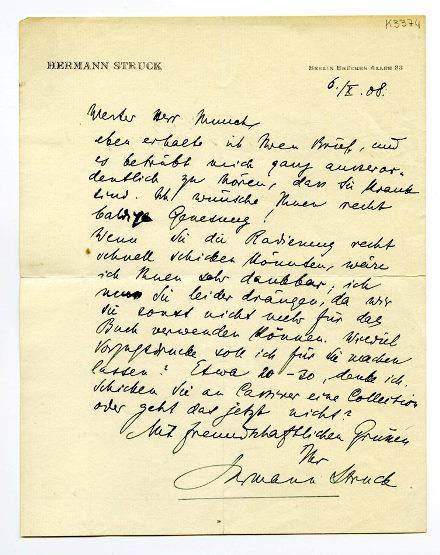 K3374
HERMANN STRUCK
BERLIN BRÜCKEN ALLEE 33
6./X. 08.
Werter Herr Munch,
eben erhalte ich Ihren Brief, und
es betrübt mich ganz ausseror-
dentlich zu hören, dass Sie krank
sind. Ich wünsche Ihnen recht
baldige Genesung!
Wenn Sie die Radierung recht
schnell schicken könnten, wäre
ich Ihnen sehr dankbar; ich
muss Sie leider drängen, da wir
sie sonst nicht mehr für das
Buch verwenden können. Wieviel
Vorzugsdrucke soll ich für Sie machen
lassen? Etwa 20-30, denke ich.
Schicken Sie an Cassirer eine Collection
oder geht das jetzt nicht?
Mit freundschaftlichen Grüssen
Ihr
Hermann Struck